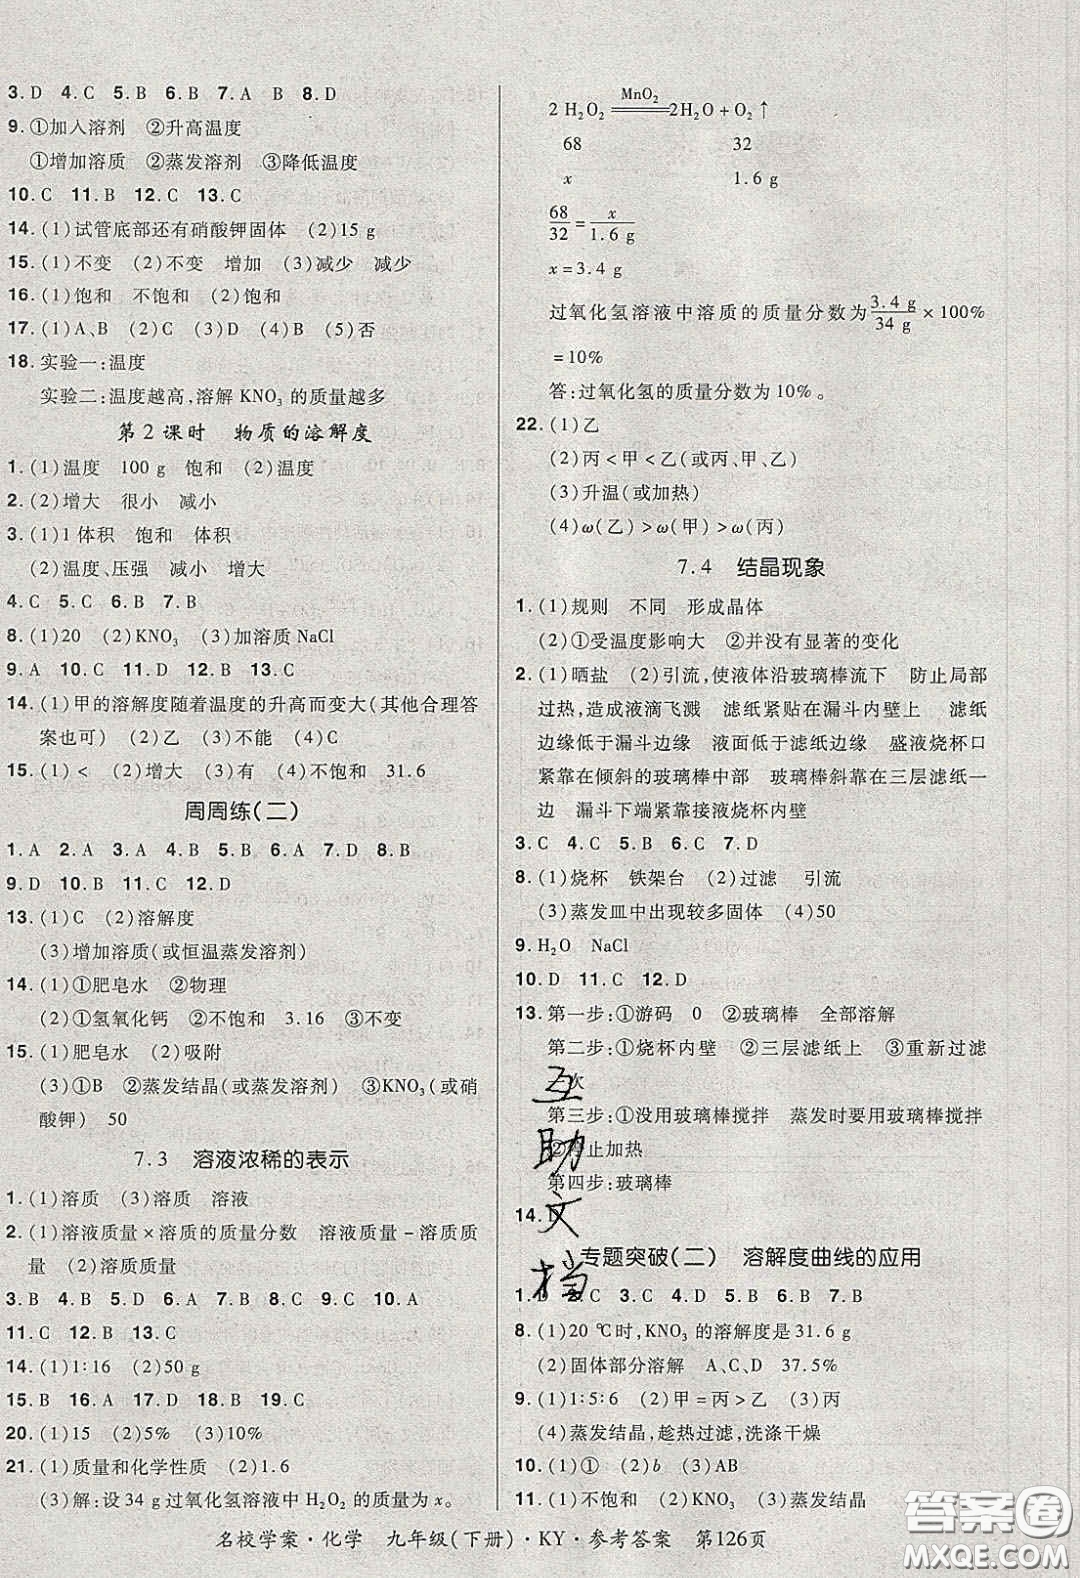 3. D  4. C  5. B  6. B  7. A  B  8. D
9. ①加入溶剂  ②升高温度
①增加溶质  ②蒸发溶剂  ③降低温度
10. C  11. B  12. C  13. C
14. (1)试管底部还有硝酸钾固体  (2)15 g
15. (1)不变  (2)不变  增加  (3)减少  减少
16. (1)饱和  不饱和  (2)饱和
17. (1)A、B  (2)C  (3)D  (4)C  (5)否
18. 实验一:温度
实验二:温度越高,溶解 KNO₃ 的质量越多
第 2 课时  物质的溶解度
1. (1)温度  100 g  饱和  (2)温度
2. (2)增大  很小  减小
3. (1)1 体积  饱和  体积
(2)温度、压强  减小  增大
4. C  5. C  6. B  7. B
8. (1)20  (2)KNO₃  (3)加溶质 NaCl
9. A  10. C  11. D  12. B  13. C
14. (1)甲的溶解度随着温度的升高而变大(其他合理答
案也可)  (2)乙  (3)不能  (4)C
15. (1)<  (2)增大  (3)有  (4)不饱和  31.6
周周练(二)
1. A  2. A  3. A  4. B  5. B  6. A  7. D  8. B
9. D  10. B  11. C  12. D
13. (1)C  (2)溶解度
(3)增加溶质(或恒温蒸发溶剂)
14. (1)①肥皂水  ②物理
(2)①氢氧化钙  ②不饱和  3.16  ③不变
15. (1)肥皂水  (2)吸附
(3)①B  ②蒸发结晶(或蒸发溶剂)  ③KNO₃(或硝
酸钾)  50
7.3  溶液浓稀的表示
1. (1)溶质  (3)溶质  溶液
2. (1)溶液质量×溶质的质量分数  溶液质量-溶质质
量  (2)溶质质量
3. B  4. B  5. D  6. B  7. C  8. C  9. C  10. A
11. C  12. B  13. C
14. (1)1∶16  (2)50 g
15. B  16. A  17. D  18. B  19. C
20. (1)15  (2)5%  (3)10%
21. (1)质量和化学性质  (2)1.6
(3)解:设 34 g 过氧化氢溶液中 H₂O₂ 的质量为 x。
2 H₂O₂ ═MnO₂═ 2H₂O+O₂↑
68  32
x  1.6 g
68/32 = x/1.6 g
x=3.4 g
过氧化氢溶液中溶质的质量分数为 3.4 g/34 g ×100%
=10%
答:过氧化氢的质量分数为 10%。
22. (1)乙
(2)丙<甲<乙(或丙、甲、乙)
(3)升温(或加热)
(4)ω(乙)>ω(甲)>ω(丙)
7.4  结晶现象
1. (1)规则  不同  形成晶体
(2)①受温度影响大  ②并没有显著的变化
2. (1)晒盐  (2)引流,使液体沿玻璃棒流下  防止局部
过热,造成液滴飞溅  滤纸紧贴在漏斗内壁上  滤纸
边缘低于漏斗边缘  液面低于滤纸边缘  盛液烧杯口
紧靠在倾斜的玻璃棒中部  玻璃棒斜靠在三层滤纸一
边  漏斗下端紧靠接液烧杯内壁
3. C  4. C  5. C  6. C  7. D
8. (1)烧杯  铁架台  (2)过滤  引流
(3)蒸发皿中出现较多固体  (4)50
9. H₂O  NaCl
10. D  11. C  12. D
13. 第一步:①游码  0  ②玻璃棒  全部溶解
第二步:①烧杯内壁  ②三层滤纸上  ③重新过滤
次
第三步:①没用玻璃棒搅拌  蒸发时要用玻璃棒搅拌
②停止加热
第四步:玻璃棒
14. D
专题突破(二)  溶解度曲线的应用
1. D  2. C  3. C  4. C  5. D  6. C  7. D
8. (1)20 ℃时,KNO₃ 的溶解度是 31.6 g
(2)固体部分溶解  A、C、D  37.5%
9. (1)1∶5∶6  (2)甲=丙>乙  (3)丙
(4)蒸发结晶,趁热过滤,洗涤干燥
10. (1)①  (2)b  (3)AB
11. (1)不饱和  (2)80  (3)KNO₃  (4)蒸发结晶
互助文档
名校学案·化学  九年级(下册)·KY·参考答案  第126页
答案圈
MXQE.COM